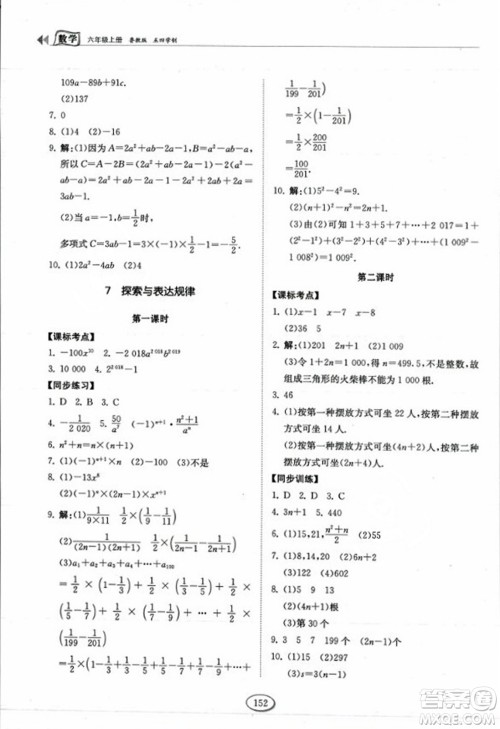 数学 六年级上册 鲁教版 五四学制
109a-9b+91c.
(2)137
7. 0
8. (1)4 (2)-16
9. 解:(1)因为 A=2a²+ab-2a-1,B=a²-ab,
所以 C=A-2B=(2a²+ab-2a-1)-2(a²
-ab)=2a²+ab-2a-1-2a²+2ab=-2a+
3ab-1.
(2)当 a=-1/2,b=-1时,
多项式 C=-2a+3ab-1=1+3/2-1=
10. (1)2a²-4ab (2)4
7 探索与表达规律
第一课时
【课标考点】
3. 10 000 4. 2^(2 018)a^(2 019)
【同步练习】
1. D 2. B 3. C
4. -1/2 020 5. 50/a⁷ (-1)^(n+1)·(n²+1)/aⁿ
6. n²+n=n(n+1)
7. (1)(2)(3)规律不是唯一的.
8. (1)-13x⁸
(2)(-1)ⁿ×(2n-1)xⁿ
9. 解:(1)1/(9×11) 1/2×(1/9-1/11)
(2)1/((2n-1)(2n+1)) 1/2×(1/(2n-1)-1/(2n+1))
(3)a₁+a₂+a₃+a₄+…+a₁₀₀
=1/2×(1-1/3)+1/2×(1/3-1/5)+1/2×
(1/5-1/7)+1/2×(1/7-1/9)+…+1/2×
(1/199-1/201)
=1/2×(1-1/3+1/3-1/5+1/5-1/7+1/7-1/9+…+
1/199-1/201)
=1/2×(1-1/201)
=1/2×200/201
=100/201.
10. 解:(1)5²-4²=9.
(2)(n+1)²-n²=2n+1.
(3)由(2)可知 1+3+5+7+…+2 017=1+
(2²-1²)+(3²-2²)+(4²-3²)+…+(1 009²-
1 008²)=1 009²
第二课时
【课标考点】
1. (1)x-1 x-8 x-7
(2)36 5
2. 解:(1)201 2n+1 (2)1 009
(3)令 2n+1=200,得 n=99.5,不是整数,故
组成三角形的火柴棒不可能用 200 根.
3. 46
4. (1)按第一种摆放方式可坐 22 人,按第二种摆
放方式可坐 14 人.
(2)按第一种摆放方式可坐(4n+2)人,按第二
种摆放方式可坐(2n+4)人.
【同步训练】
1. D 2. D 3. C
6. (1)15,21,(n²+n)/2 (2)55
7. (1)24 (2)n=5 (3)602
8. (1)5 9 13 (2)4n+1
(3)第 30 个
9. 3 5 7 6个 20个
10. (1)15 (2)297
(3)s=3n-3
152